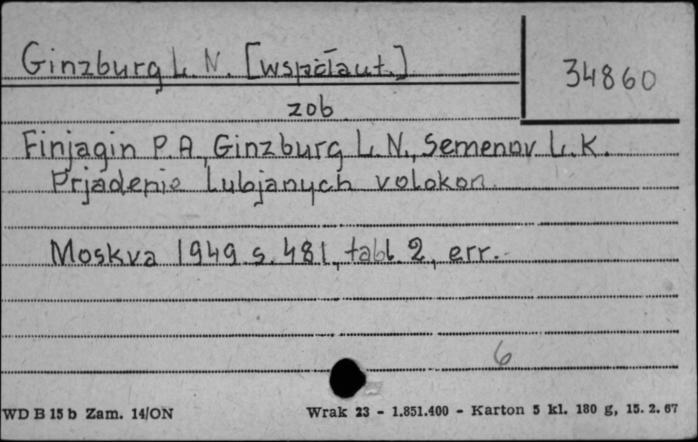 Ginzburg L. N. [współaut.]
34860
zob
Finjagin P. A., Ginzburg L. N., Semenov L. K.
Prjadenie lubjanych volokon.
Moskva 1949 s. 481, tabl. 2, err.
6
WD B 15 b Zam. 14/ON
Wrak 23 - 1.851.400 - Karton 5 kl. 180 g, 15. 2. 67